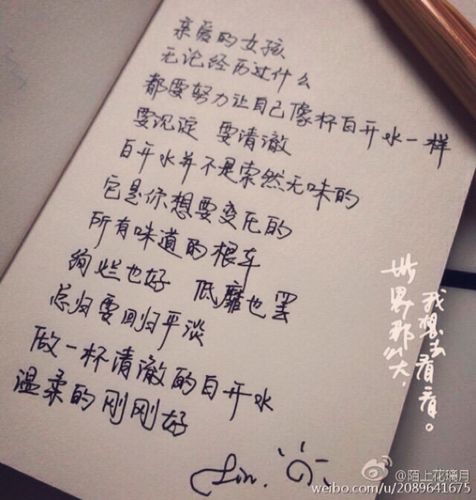 亲爱的女孩
无论经历过什么
都要努力让自己像杯白开水一样
要沉淀 要清澈
白开水并不是索然无味的
它是你想要变化的
所有味道的根本
绚烂也好 低靡也罢
总归要回归平淡
做一杯清澈的白开水
温柔的刚刚好
Lin.
世界那么大，
我想去看看。
@陌上花璃月
weibo.com/u/2089641675